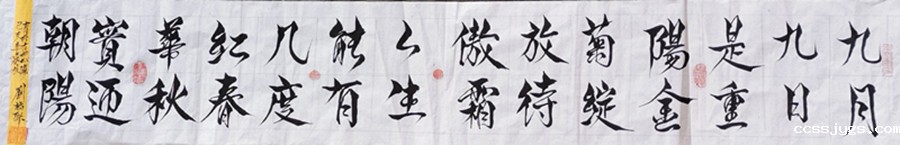 九月
九日
是重
陽金
菊綻
放待
傲霜
人生
能有
几度
红春
華秋
實迎
朝陽
ccssjygs.com